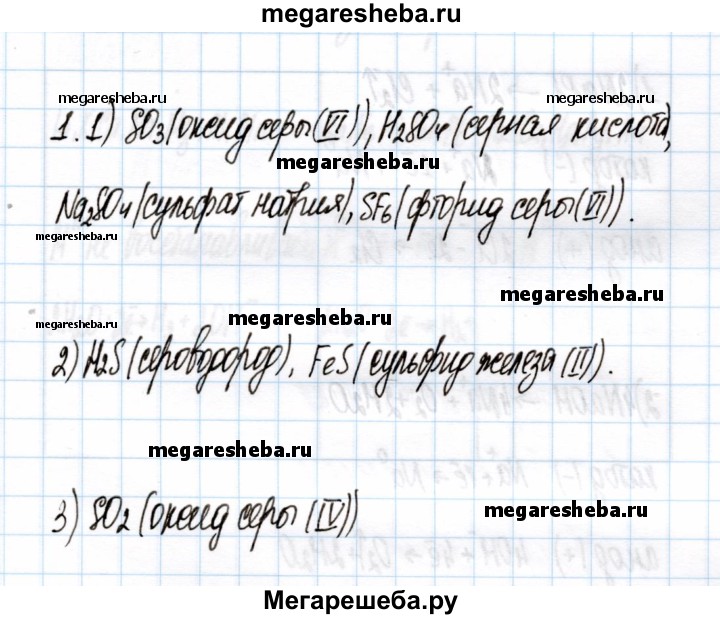 megaresheba.ru
megaresheba.ru megaresheba.ru
1. 1) SO3 (оксид серы (VI)), H2SO4 (серная кислота),
megaresheba.ru
Na2SO4 (сульфат натрия), SF6 (фторид серы (VI)).
megaresheba.ru
megaresheba.ru
megaresheba.ru megaresheba.ru
2) H2S (сероводород), FeS (сульфид железа (II)).
megaresheba.ru
3) SO2 (оксид серы (IV))
megaresheba.ru
Мегарешеба.ру